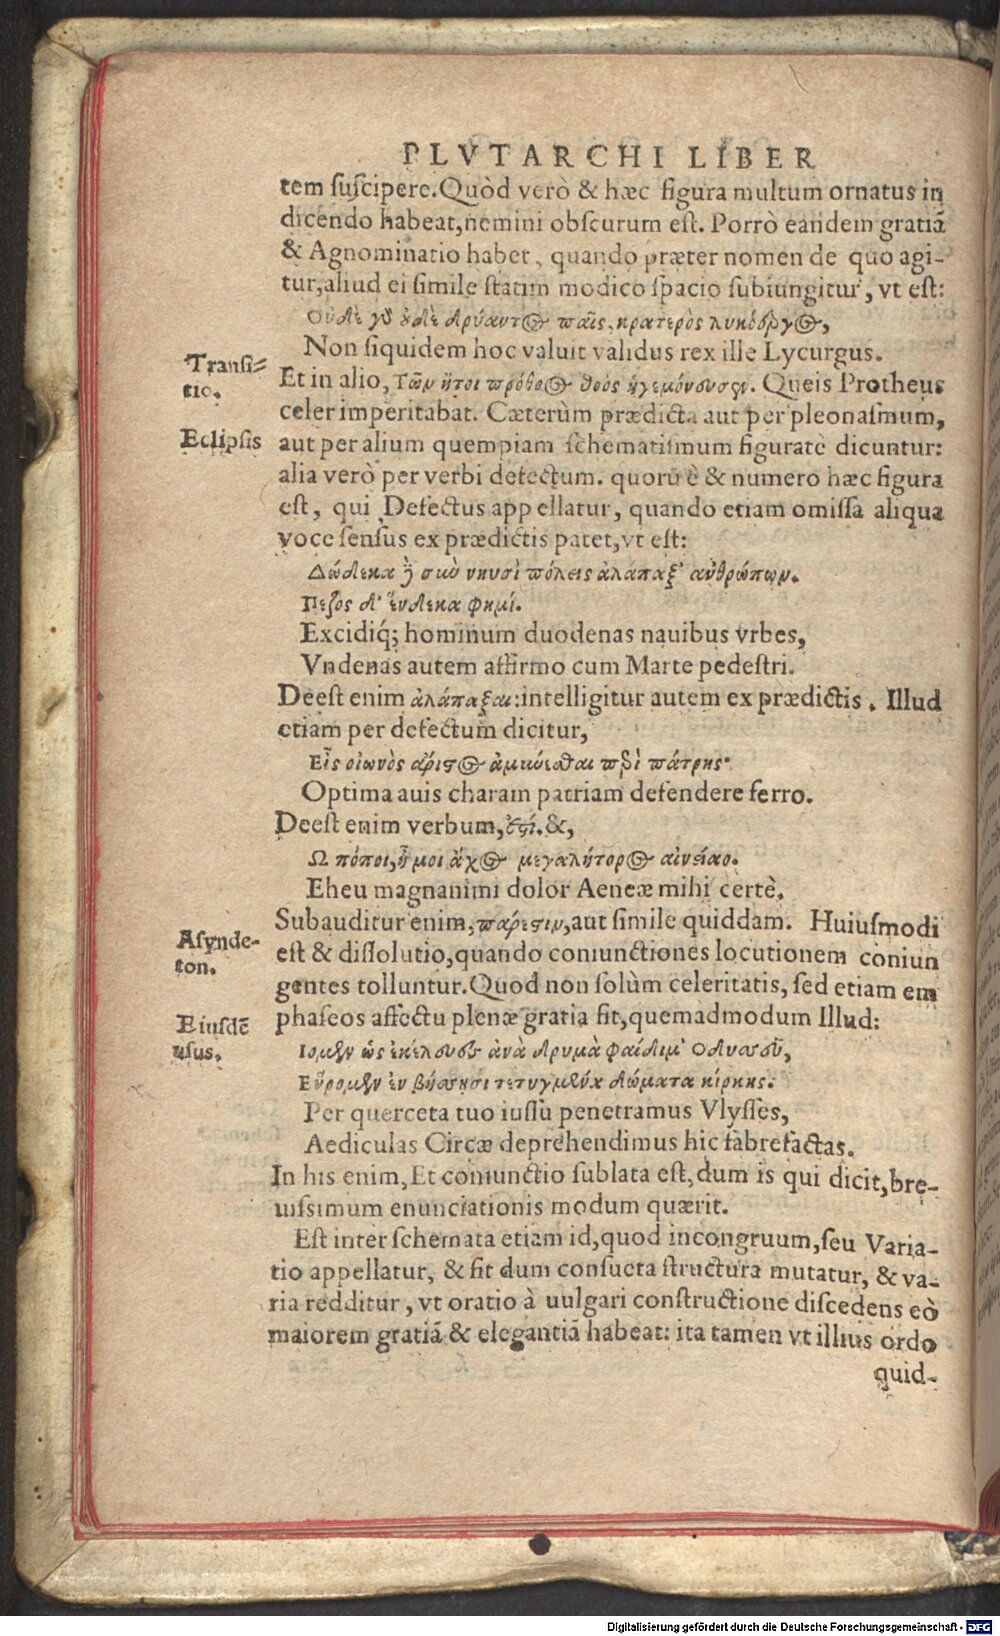 PLVTARCHI LIBER
tem suscipere. Quòd verò & hæc figura multum ornatus in
dicendo habeat, nemini obscurum est. Porrò eandem gratiã
& Agnominatio habet, quando præter nomen de quo agi-
tur, aliud ei simile statim modico spacio subiungitur, vt est:
Οὐδὲ γὸ ἐδὲ Δρύαντ@ παῖς, κρατερὸς λυκόοργ@,
Non siquidem hoc valuit validus rex ille Lycurgus.
Transi-
tio.
Et in alio, Τῶν ἤτοι πρόθο@ θοὸς ἡγεμόνευσεν. Queis Protheus
celer imperitabat. Cæterùm prædicta aut per pleonasmum,
Eclipsis
aut per alium quempiam schematismum figuratè dicuntur:
alia verò per verbi defectum. quorũ è & numero hæc figura
est, qui Defectus appellatur, quando etiam omissa aliqua
voce sensus ex prædictis patet, vt est:
Δώδεκα δὴ σὺν νηυσὶ πόλεις ἀλάπαξ' ἀνθρώπων.
Πεζὸς δ' ἕνδεκα φημί.
Excidiq́; hominum duodenas nauibus vrbes,
Vndenas autem affirmo cum Marte pedestri.
Deest enim ἀλάπαξαι: intelligitur autem ex prædictis. Illud
etiam per defectum dicitur,
Εἷς οἰωνὸς ἄριστ@ ἀμύνεσθαι περὶ πάτρης·
Optima auis charam patriam defendere ferro.
Deest enim verbum, ἐστί. &,
Ω πόποι, ἦ μοι ἄχ@ μεγαλήτορ@ αἰνείαο.
Eheu magnanimi dolor Aeneæ mihi certè.
Subauditur enim, πάρεστιν, aut simile quiddam. Huiusmodi
Asynde-
ton.
est & dissolutio, quando coniunctiones locutionem coniun
gentes tolluntur. Quod non solùm celeritatis, sed etiam em
Eiusdẽ
usus.
phaseos affectu plenæ gratia fit, quemadmodum Illud:
Ιομεν ὡς ἐκέλευες ἀνὰ δρυμὰ φαίδιμ' Οδυσσεῦ,
Εὕρομεν ἐν βήσσησι τετυγμένα δώματα κίρκης.
Per querceta tuo iussu penetramus Vlysses,
Aediculas Circæ deprehendimus hic fabrefactas.
In his enim, Et coniunctio sublata est, dum is qui dicit, bre-
uissimum enunciationis modum quærit.
Est inter schemata etiam id, quod incongruum, seu Varia-
tio appellatur, & fit dum consueta structura mutatur, & va-
ria redditur, vt oratio à uulgari constructione discedens eò
maiorem gratiã & elegantiã habeat: ita tamen vt illius ordo
quid-
Digitalisierung gefördert durch die Deutsche Forschungsgemeinschaft - DFG